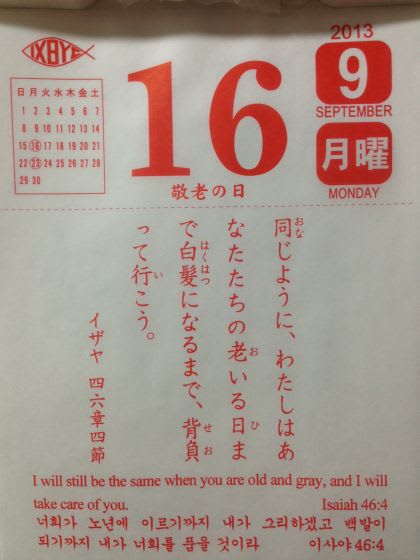 ΙΧΘΥΣ
2013
9
SEPTEMBER
月曜
MONDAY
日 月 火 水 木 金 土
1 2 3 4 5 6 7
8 9 10 11 12 13 14
15 16 17 18 19 20 21
22 23 24 25 26 27 28
29 30
16
敬老の日
同じように、わたしはあ
なたたちの老いる日ま
で白髪になるまで、背負
って行こう。
イザヤ 四六章四節
I will still be the same when you are old and gray, and I will
take care of you. Isaiah 46:4
너희가 노년에 이르기까지 내가 그리하겠고 백발이
되기까지 내가 너희를 품을 것이라 이사야 46:4